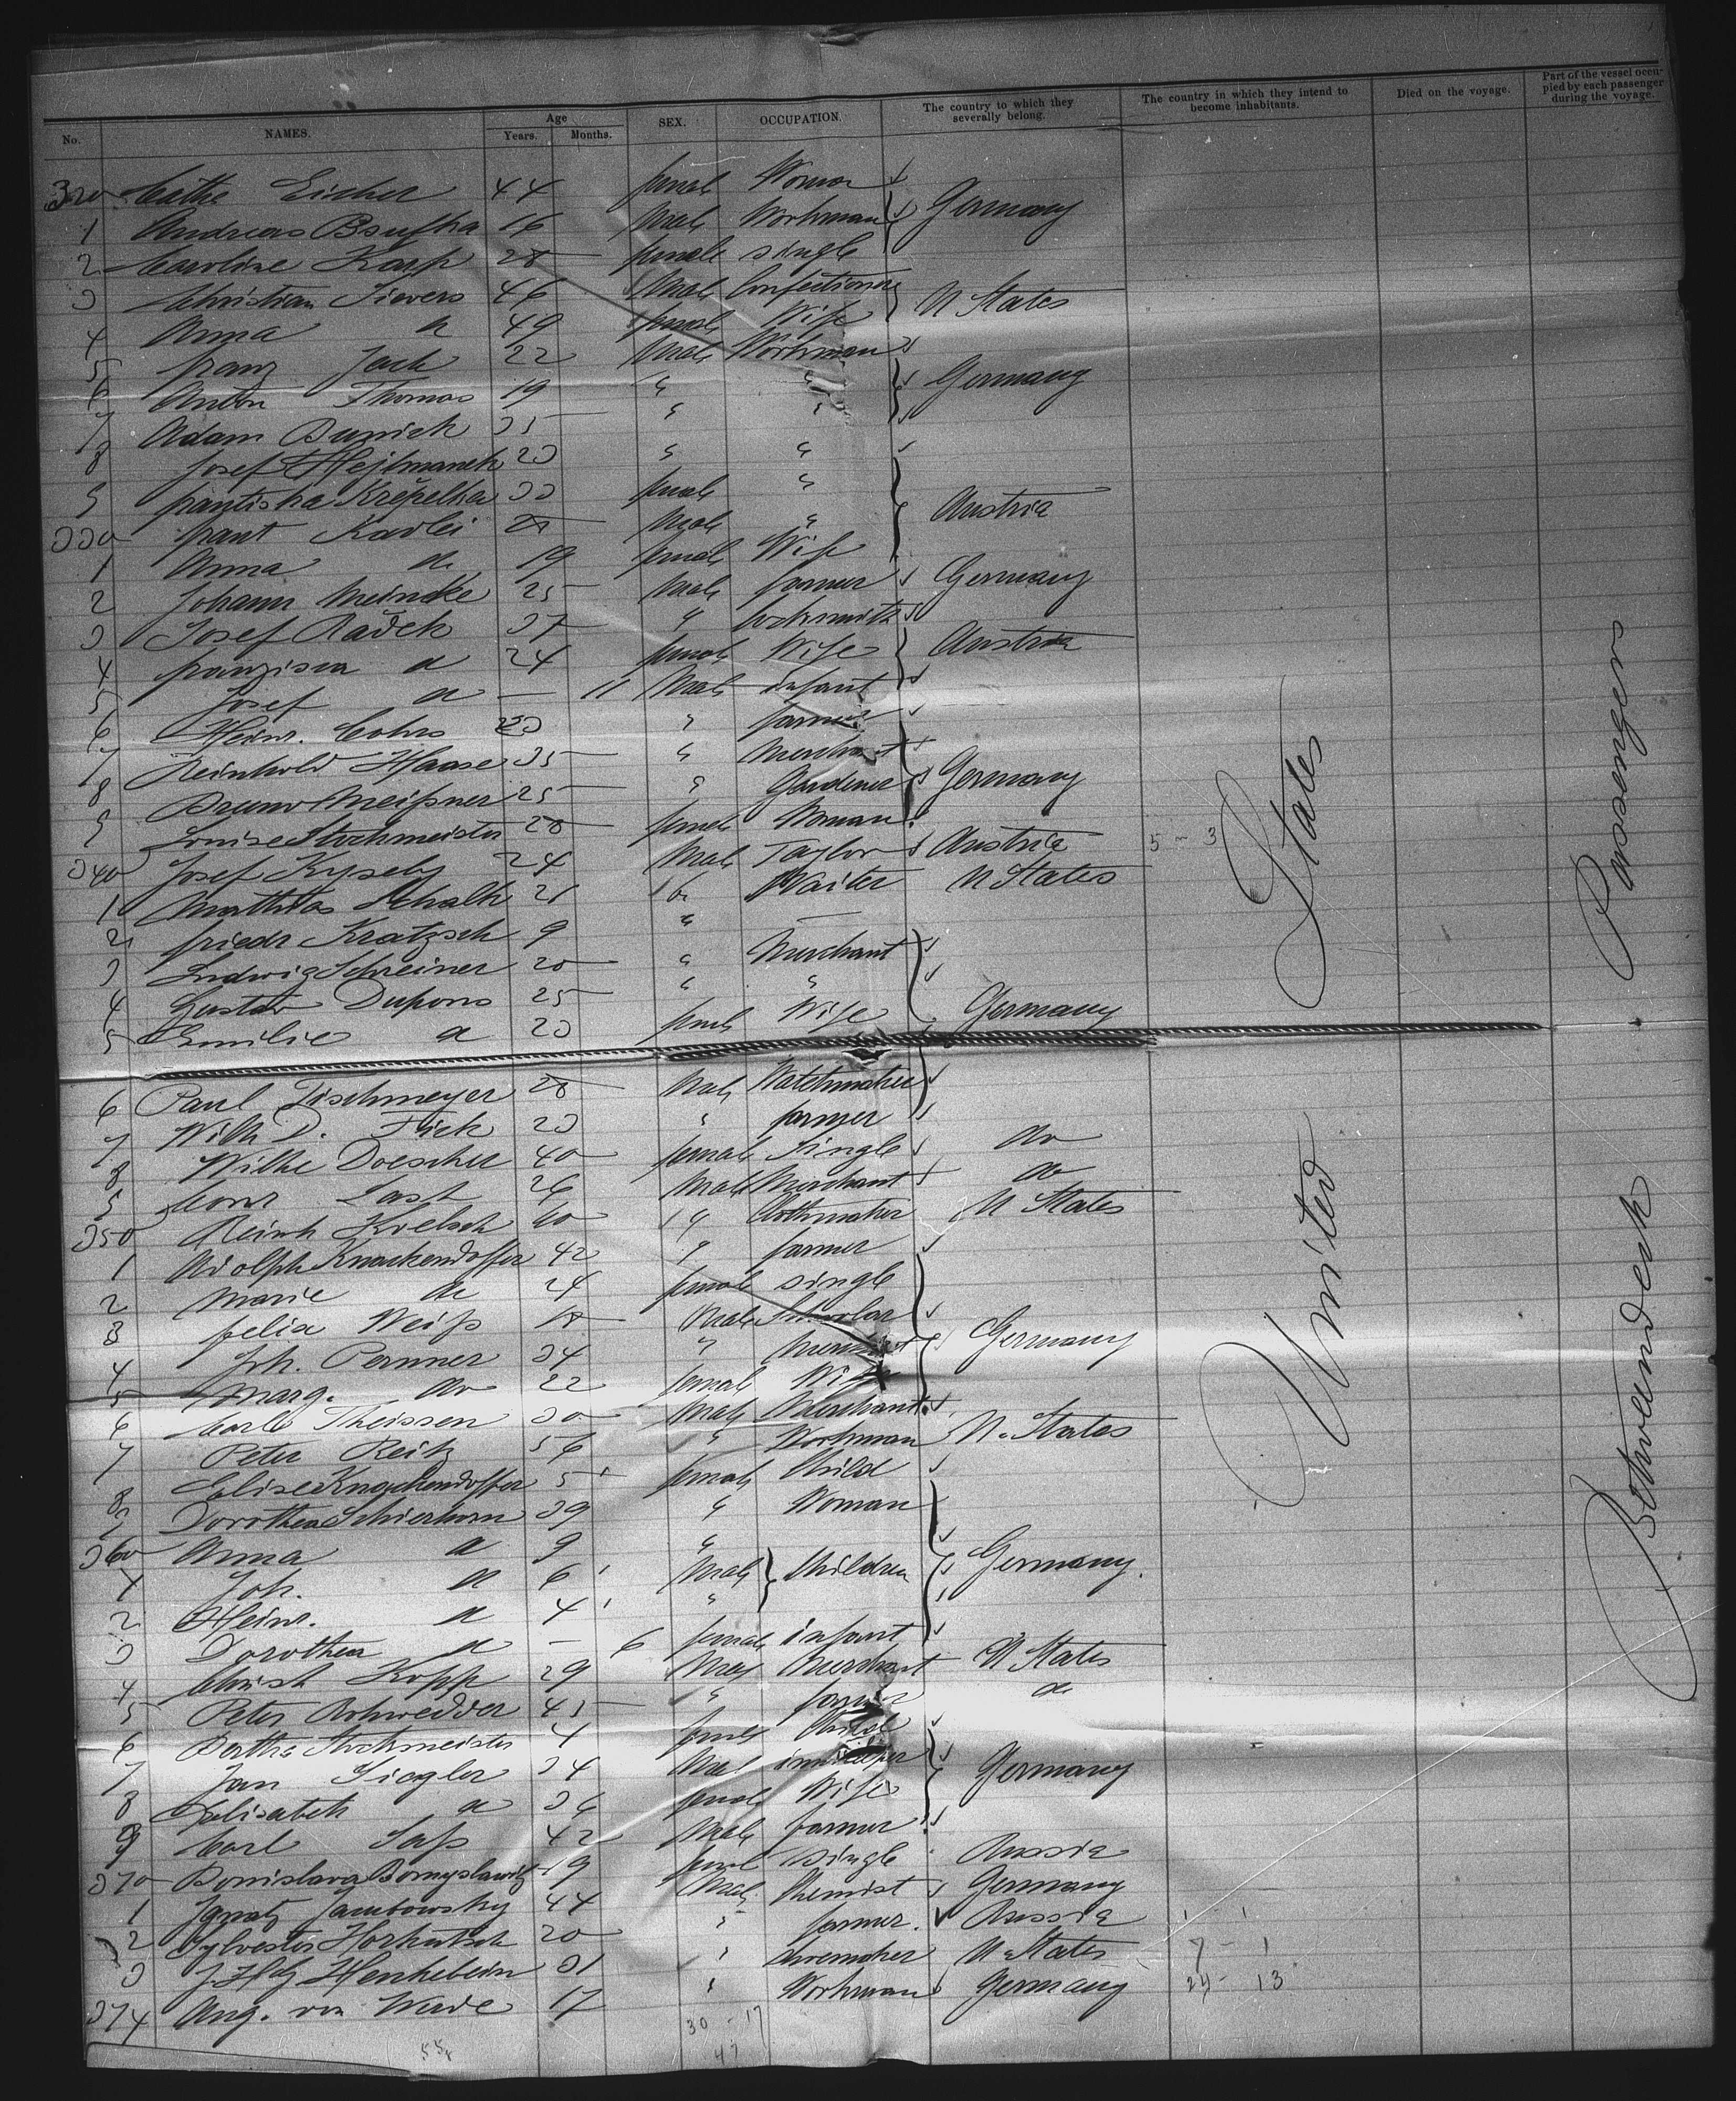 No. NAMES. Age Years. Months. SEX. OCCUPATION. The country to which they severally belong. The country in which they intend to become inhabitants. Died on the voyage. Part of the vessel occupied by each passenger during the voyage.
320 Cathe Eicher 44 female Woman
1 Andreas 16 Male Workman Germany
2 Caroline Karp 28 female single
3 Christian Sievers 46 Male Confectioner U States
4 Anna do 49 female Wife
5 Franz Jack 22 Male Workman
6 Anton Thomas 19 " " Germany
7 Adam 35 " "
8 Josef Hejtmanek 23 " "
9 Frantiska Křepelka 33 female " Austria
330 Frant Karlei 28 Male "
1 Anna do 19 female Wife
2 Johann Meincke 25 Male farmer Germany
3 Josef Radek 37 " locksmith
4 Franzisca do 24 female Wife Austria
5 Josef do — 11 Male infant
6 Heinr. Cohrs 23 " farmer
7 Reinhold Haase 35 " Merchant
8 Bruno Meißner 25 " Gardener Germany
9 Louise Stockmeister 28 female Woman
340 Josef Kysely 24 Male Taylor Austria 5 - 3
1 Matthias Schalk 21 do Waiter U States
2 Friedr Kratzsch 9 " —
3 Ludwig Schreiner 20 " Merchant
4 Gustav Dupons 25 " "
5 Emilie do 23 female Wife Germany
6 Paul Tischmeyer 28 Male Watchmaker
7 Wilh D. Fick 23 " farmer
8 Wilhe Doescher 40 female Single do
9 Conr Last 26 Male Merchant do
350 Reinh Kroelsch 60 " Clothmaker U States
1 Adolph Knackendoffer 42 " farmer
2 Marie do 24 female single
3 Felix Weiß 18 Male Scholar
4 Joh. Permner 34 " Merchant Germany
5 Marg. do 22 female Wife
6 Carl Theissen 30 Male Merchant
7 Peter Reitz 56 " Workman U. States
8 Elise Knackendoffer 5 female Child
9 Dorothea Schierhorn 39 " Woman
360 Anna do 9 "
1 Joh. do 6 Male Children Germany.
2 Heinr. do 4 "
3 Dorothea do — 6 female infant
4 Christ Kopp 29 Male Merchant U States
5 Peter Rohwedder 45 " farmer do
6 Bertha Stockmeister 4 female Child
7 Jan Siegler 34 Male innkeeper Germany
8 Elisabeth do 36 female Wife
9 Carl Saß 42 Male farmer
370 Bronislava 19 female single Russia
1 Ignatz Jambowsky 44 Male Chemist Germany
2 Sylvester 20 " farmer. Russia 1 - 1
3 Henkelein 31 " shoemaker U. States 7 - 1
374 Aug. von Wede 17 " Workman Germany 24 - 13
30 - 17
47
55
United States
Between deck Passengers